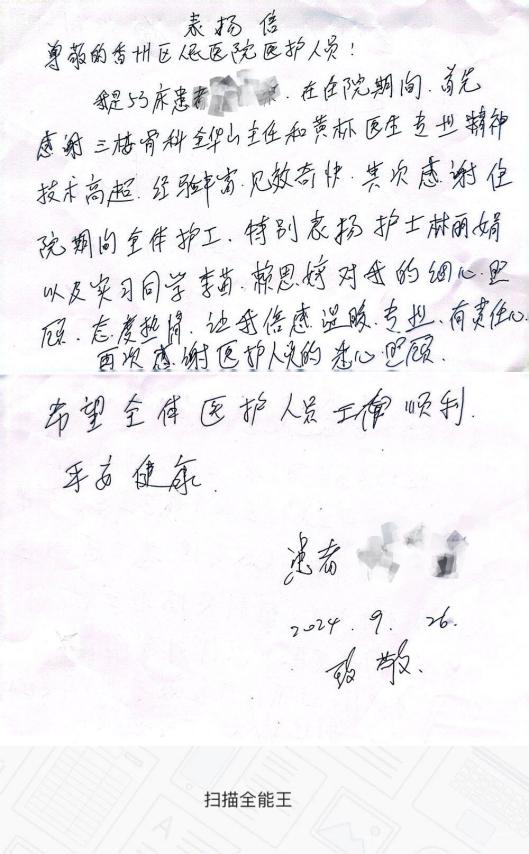 表扬信
尊敬的香州区人民医院医护人员！
我是53床患者 在住院期间.首先
感谢三楼骨科 华山主任和黄林医生专业精神
技术高超.经验丰富.见效奇快.其次感谢住
院期间全体护工.特别表扬护士林丽娟
以及实习同学李苗.赖思婷对我的细心照
顾.态度热情.让我倍感温暖.专业.有责任心.
再次感谢医护人员的悉心照顾.
希望全体医护人员工作顺利.
平安健康.
患者
2024.9.26.
致敬.
扫描全能王